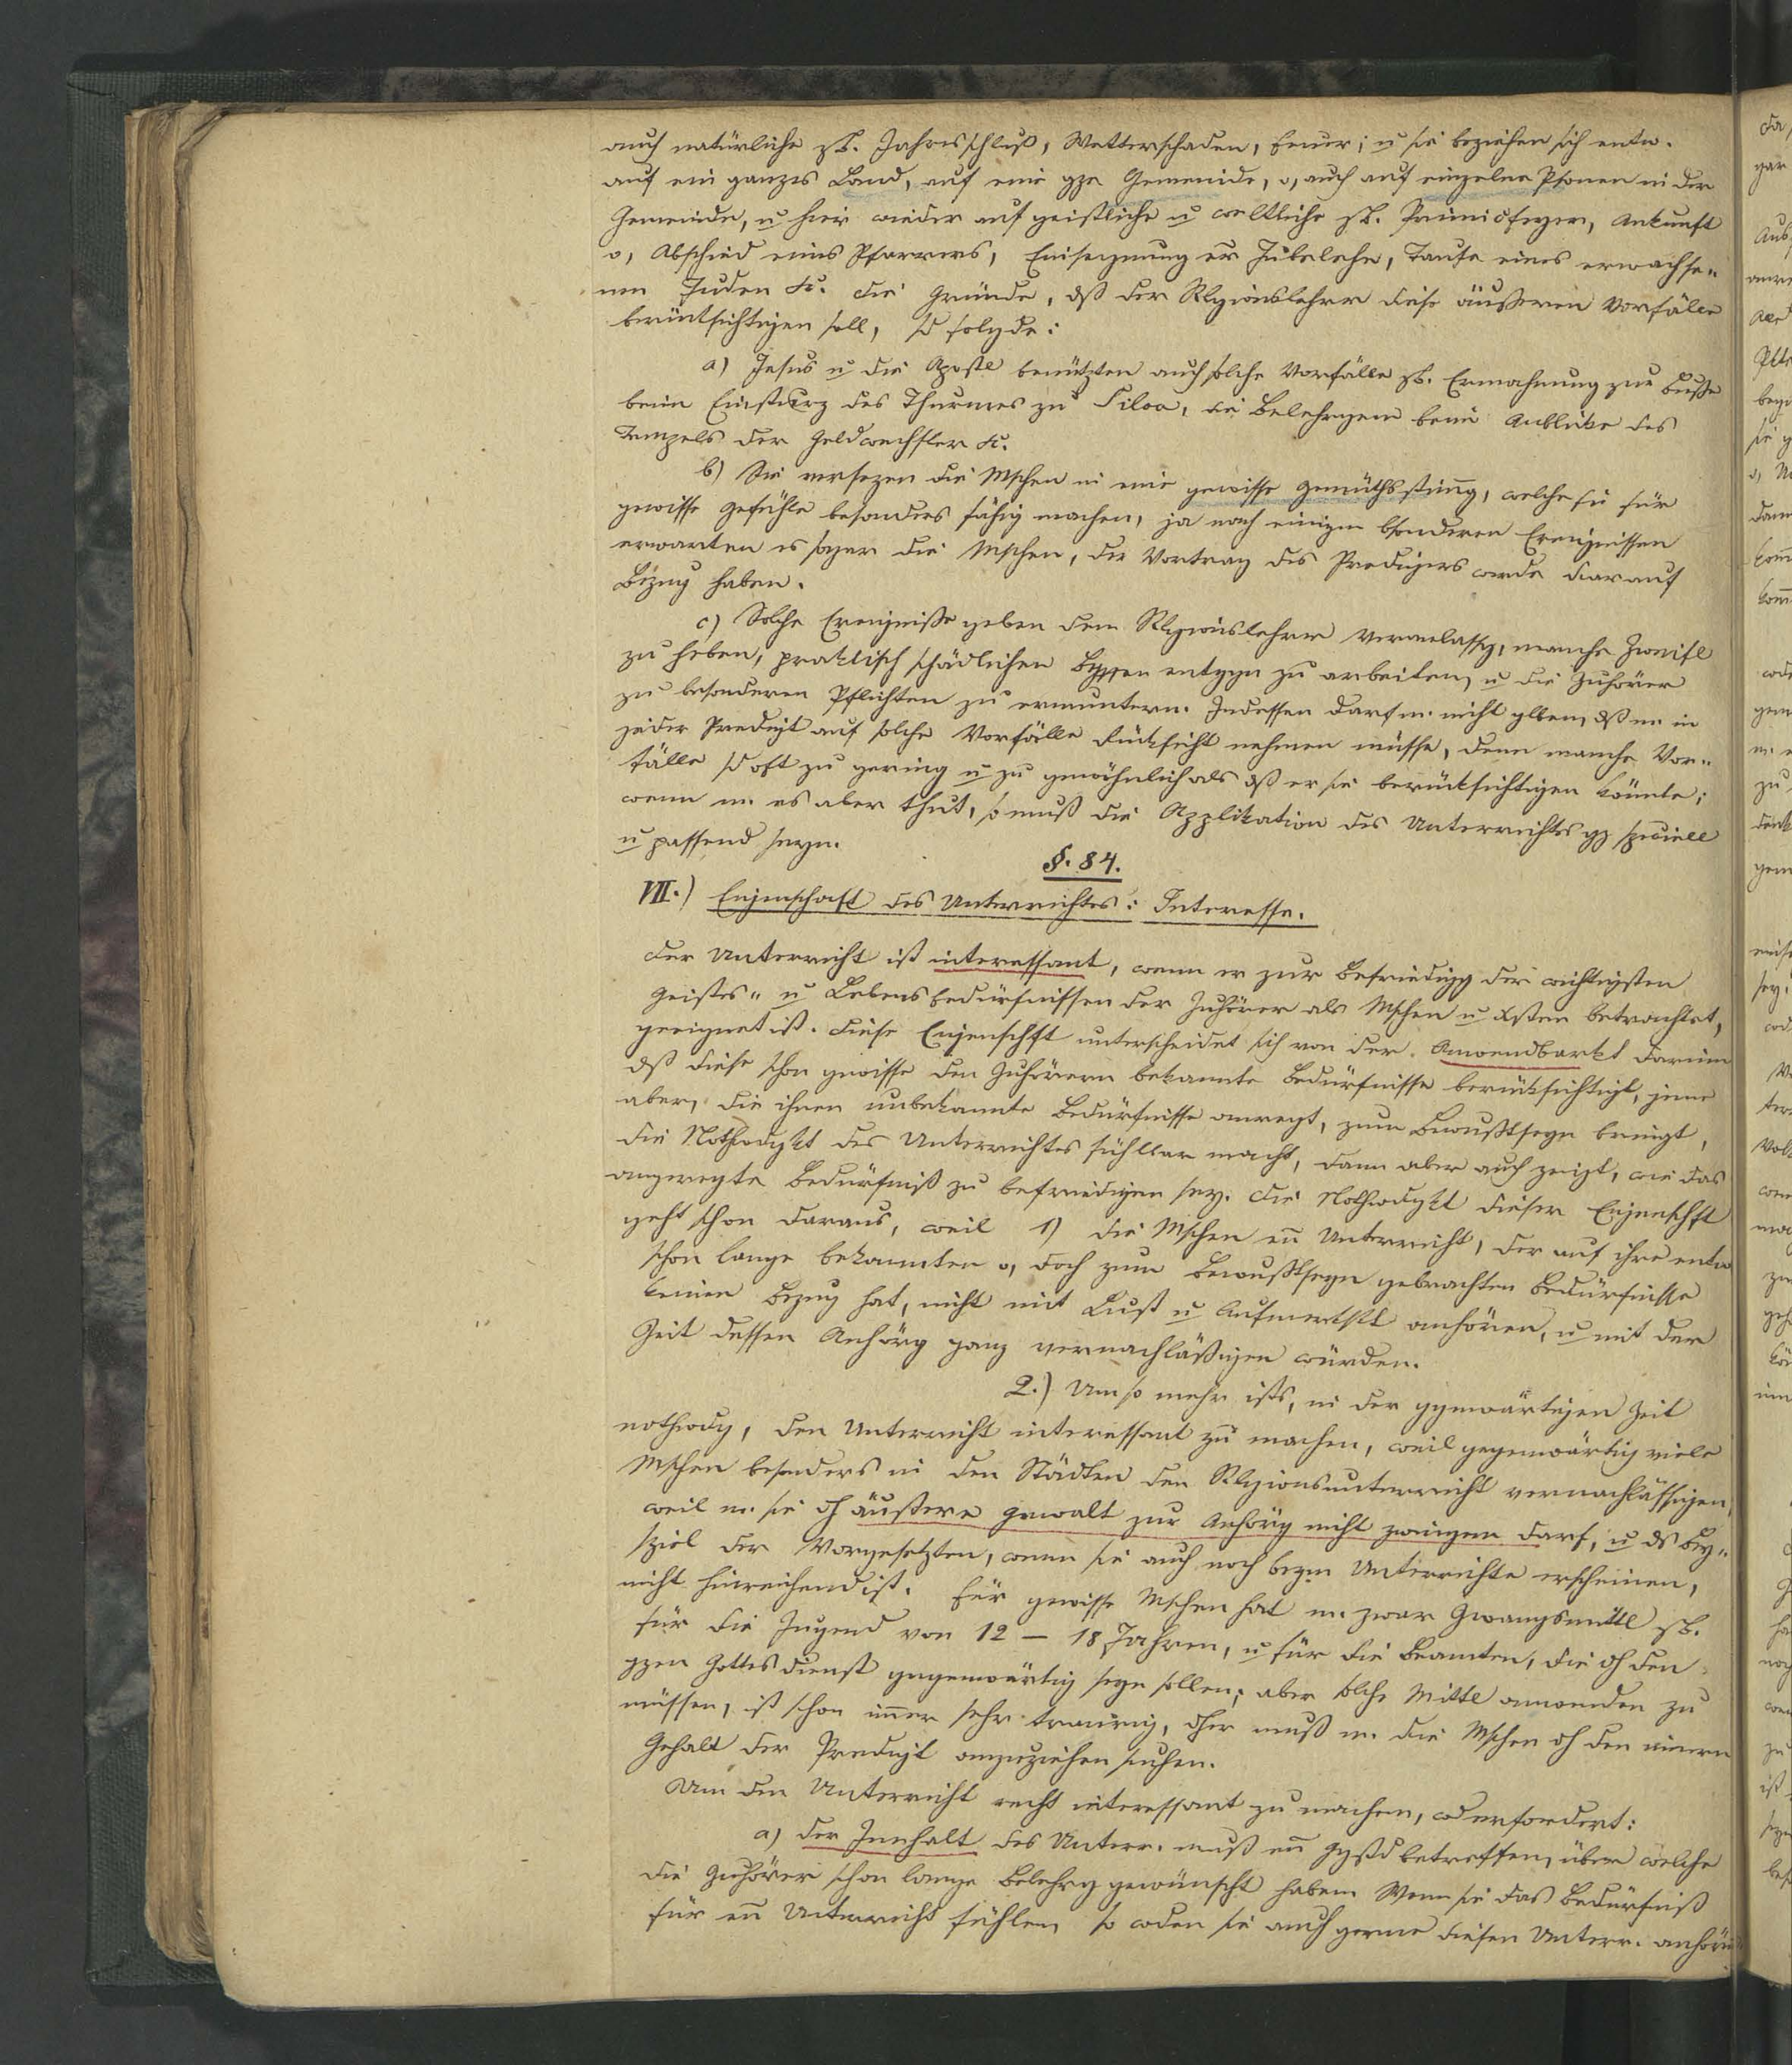 auch natürliche zB. Jahresschluß, Wetterschaden, Feuer; u sie beziehen sich entw.
auf ein ganzes Land, auf eine gze Gemeinde, o, auch auf einzelne Psonen in der
Gemeinde, u hier wieder auf geistliche u weltliche zB. Primizfeyer, Ankunft
o, Abschied eines Pfarrers, Einsegnung er Jubelehe, Taufe eines erwachse„
nen Juden &c. Die Gründe, dß der Rlgionslehrer diese äußeren Vorfälle
berücksichtigen soll, sd folgde:
a) Jesus u die Apostl benützten auch solche Vorfälle zB. Ermahnung zur Buße
beim Einsturz des Thurmes zu Siloa, die Belehrgen beim Anblicke des
Tempels der Geldwechsler &c.
b) Sie versezen die Mschen in eine gewisse Gemüthsstimg, welche sie für
gewisse Gefühle besonders fähig machen, ja nach einigen bsonderen Ereignissen
erwarten es sogar die Mschen, der Vortrag des Predigers werde darauf
Bezug haben.
c) Solche Ereignisse geben dem Rlgionslehrer Veranlassg, manche Zweifl
zu heben, praktisch schädlichen entggn zu arbeiten, u die Zuhörer
zu besonderen Pflichten zu ermuntern. Indessen darf m. nicht glben, dß m. in
jeder Predigt auf solche Vorfälle Rücksicht nehmen müsse, denn manche Vor„
fälle sd oft zu gering u zu gewöhnlich als dß er sie berücksichtigen könnte;
wenn m. es aber thut, so muß die Applikation des Unterrichts gz speciell
u passend seyn.
§. 84.
VII.) Eigenschaft des Unterrichtes: Interesse.
Der Unterricht ist interessant, wenn er zur Befriedigg der wichtigsten
Geistes„ u Lebensbedürfnissen der Zuhörer als Mschen u Xsten betrachtet,
geeignet ist. Diese Eigenschft unterscheidet sich von der Anwendbarkt darinn
dß diese schon gewisse den Zuhörern bekannte Bedürfnisse berücksichtigt, jene
aber, die ihnen unbekannte Bedürfnisse anregt, zum Bewußtseyn bringt,
die Nothwdgkt des Unterrichtes fühlbar macht, dann aber auch zeigt, wie das
angeregte Bedürfniß zu befriedigen sey. Die Nothwdgkt dieser Eigenschft
geht schon daraus, weil 1) die Mschen en Unterricht, der auf ihre entw
schon lange bekannten o, doch zum Bewußtseyn gebrachten Bedürfnisse
keinen Bezug hat, nicht mit Lust u Aufmerkskt anhören, u mit der
Zeit dessen Anhörg ganz vernachläßigen würden.
2.) Um so mehr ists, in der ggenwärtigen Zeit
nothwdg, den Unterricht interessant zu machen, weil gegenwärtig viele
Mschen besonders in den Städten den Rlgionsunterricht vernachlässigen,
weil m. sie dh äußere Gewalt zur Anhörg nicht zwingen darf, u ds Bey„
spiel der Vorgesetzten, wenn sie auch noch beym Unterrichte erscheinen,
nicht hinreichend ist. Für gewisse Mschen hat m. zwar Zwangsmittl zB.
für die Jugend von 12 – 18 Jahren, u für die Beamten, die dh den
gzen Gottesdienst gegenwärtig seyn sollen; aber solche Mittl anwenden zu
müssen, ist schon imer sehr traurig, dher muß m. die Mschen dh den innern
Gehalt der Predigt anzuziehen suchen.
Um den Unterricht recht interessant zu machen, wd erfordert:
a) Der Innhalt des Unterr. muß en Ggstd betreffen, über welche
die Zuhörer schon lange Belehrg gewünscht haben. Wenn sie das Bedürfniß
für en Unterricht fühlen, so wden sie auch gerne diesen Unterr. anhören